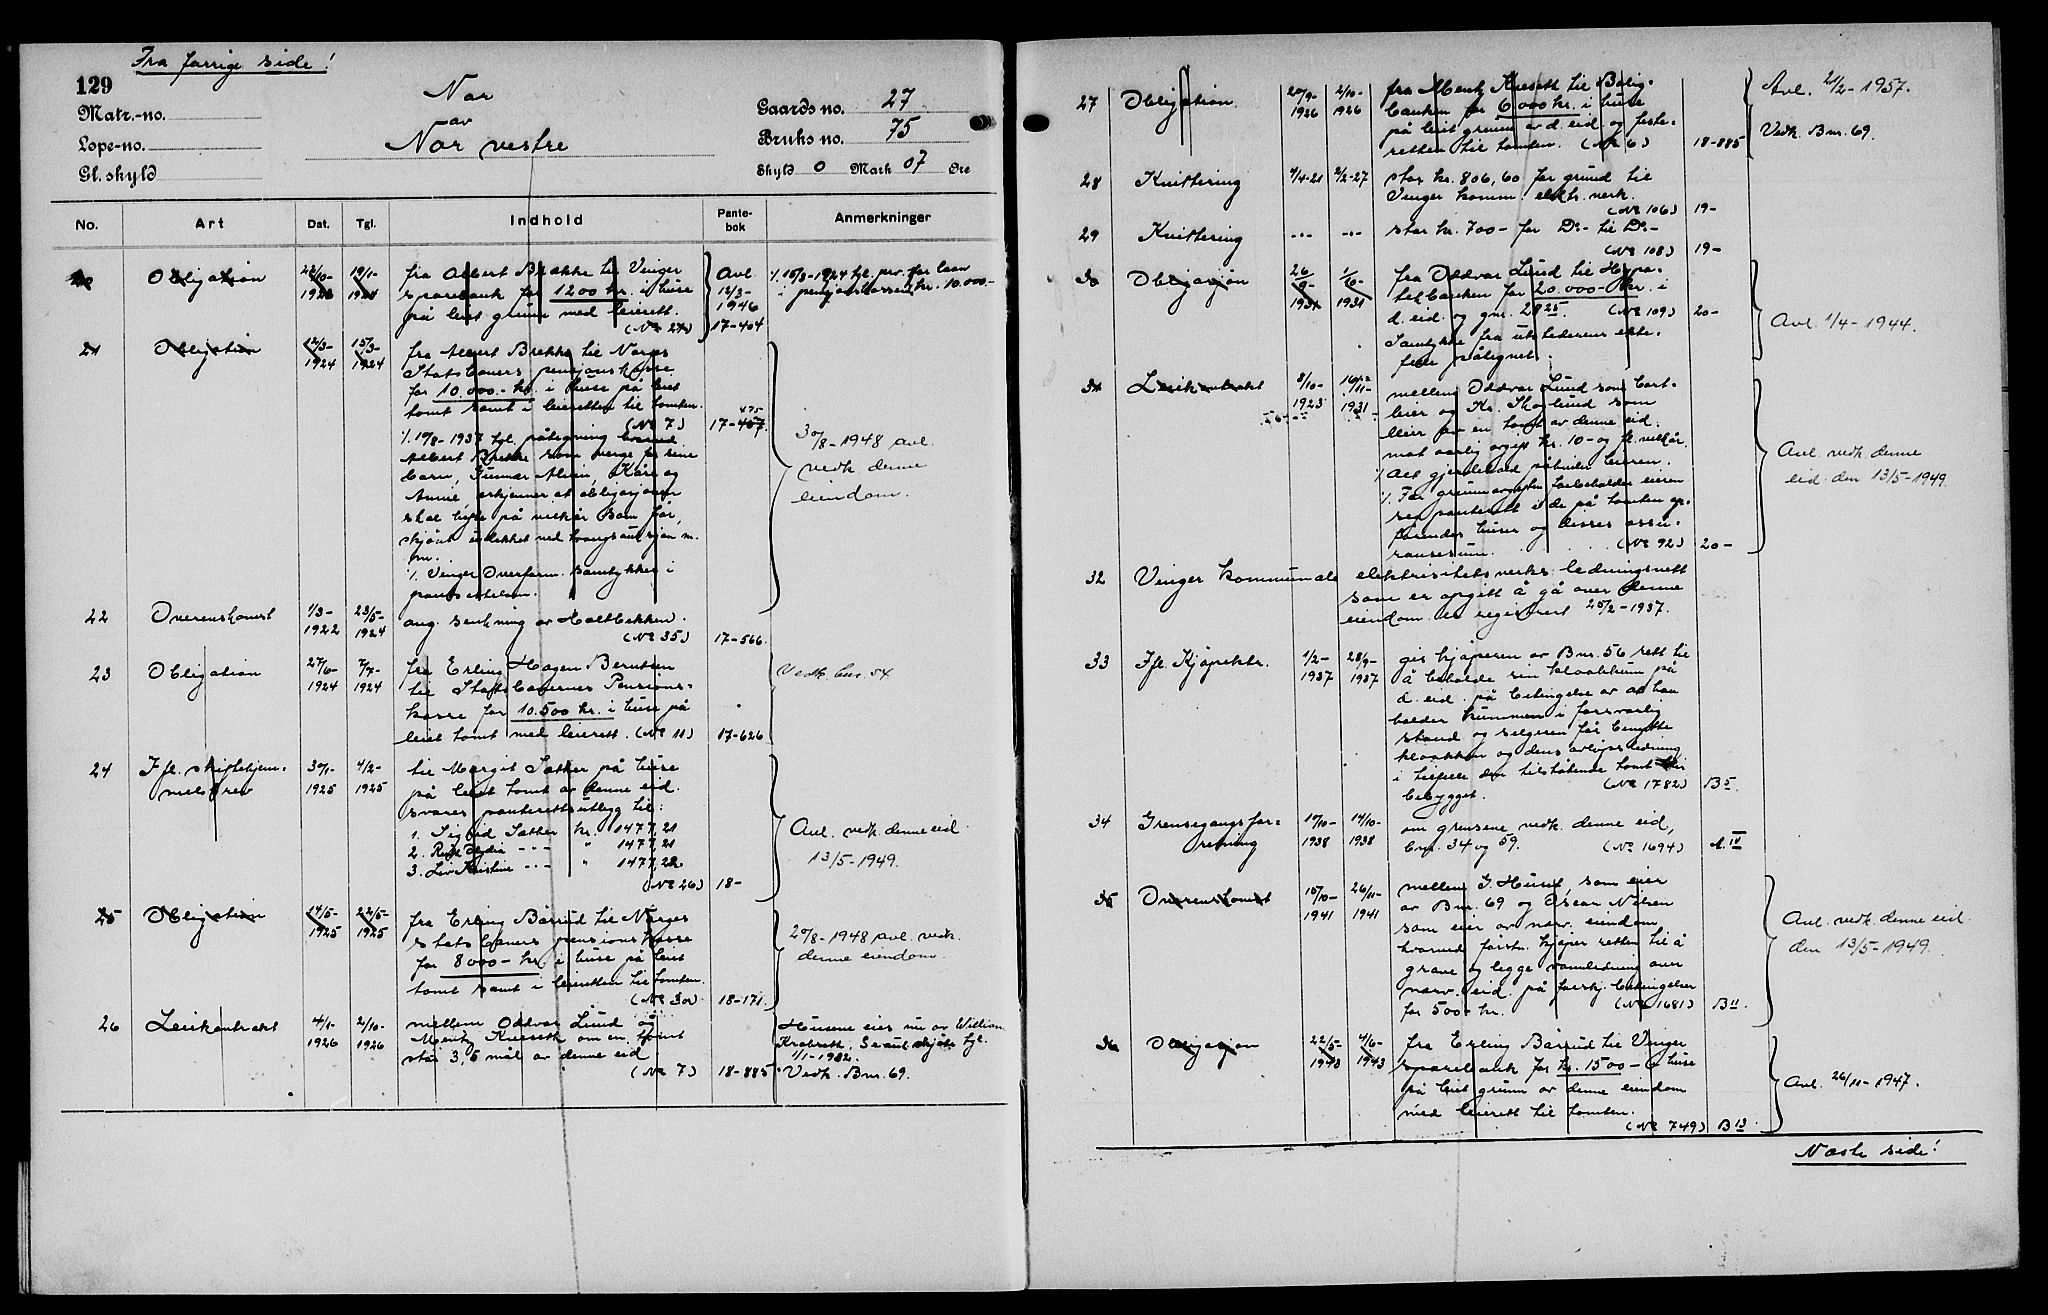 Fra forrige side!
129
Matr.-no.
Løpe-no.
Gl. skyld
Nor
av
Nor vestre
Gaards no. 27
Bruks no. 75
Skyld 0 Mark 07 Øre
No. Art Dat. Tgl. Indhold Pante-bok Anmerkninger
20 Obligation 22/10- 19/1- fra Albert Brække til Vinger Avl
1923 1924 sparebank for 1200 kr. i huse 12/3-
på leiet grunn med leierett. 1946
(No 24) 17-404
% 15/3-1924 tgl. pr. for laan
i pensjonskassen kr. 10.000.-
21 Obligation 12/3- 15/3- fra Albert Brekke til Norges
1924 1924 Statsbaners pensjonskasse
for 10.000.- kr. i huse på leiet
tomt samt i leieretten til tomten.
(No 7) 17-457 475
% 19/8-1937 tgl. påtegning hvorved
Albert Brekke som verge for sine
barn, Gunnar Alvin, Kåre og
Annie, erkjenner at obligasjonen
skal hefte på vilkår som før,
skjønt utslekket ved tvangsauksjon m.
m.
% Vinger Overform. samtykker i
pantsettelsen.
30/8-1948 avl.
vedk. denne
eiendom.
22 Overenskomst 1/3- 23/5- ang. senkning av Holtbekken.
1922 1924 (No 35) 17-566
23 Obligation 27/6- 7/7- fra Erling Hagen Berntsen
1924 1924 til Statsbanernes Pensions-
kasse for 10.500 kr. i huse på
leiet tomt med leierett. (No 11) 17-626
Vedk. bnr. 54
24 Ifl. skiftehjem- 30/1- 4/2- til Margit Sæther på huse
melsbrev 1925 1925 på leiet tomt av denne eid.
svarer panterettsutlegg til:
1. Sigrid Sæther kr. 1477,21
2. Ruth Lydia -"- " 1477,21
3. Liv Kristine -"- " 1477,22
(No 26) 18-
Avl. vedk. denne eid
13/5-1949.
25 Obligation 14/5- 22/5- fra Erling Bårrud til Norges
1925 1925 statsbaners pensionskasse
for 8000- kr. i huse på leiet
tomt samt i leieretten til tomten.
(No 30) 18-171.
20/8-1948 avl. vedk.
denne eiendom.
26 Leiekontrakt 4/1- 2/10- mellem Oddvar Lund og
1926 1926 Mentz Kueseth om en tomt
stor 3,5 mål av denne eid
(No 7) 18-885
Husene eies nu av William
tgl.
1/1-1932.
Vedk. Bnr. 69.
27 Obligation 20/9- 2/10- fra Mentz Kueseth til Bolig-
1926 1926 banken for 6000 kr. i huse
på leiet grunn av d. eid. og feste-
retten til tomten. (No 6) 18-885
Avl. 2/2-1957.
Vedk. Bnr. 69.
28 Kvittering 9/4-21 2/2-27 stor kr. 806,60 for grund til
Vinger komm. elektr. verk.
(No 106) 19-
29 Kvittering -"- -"- stor kr. 700- for Do- til Do-
(No 108) 19-
30 Obligasjon 26/9- 1/10- fra Oddvar Lund til Hypo-
1931 1931 tekbanken for 20.000- kr. i
d. eid. og gnr. 28 25. (No 109) 20-
Samtykke fra utstederens ekte-
felle påtegnet.
Avl. 1/4-1944.
31 Leiekontrakt 8/10- 16/11- mellem Oddvar Lund som bort-
1923 1931- leier og Kr. Skoglund som
leier for en tomt av denne eid.
mot aarlig avgift kr. 10- og fl. vilkår.
% Alt gjerdehold påhviler leieren.
% For grunnavgiften forbeholder eieren
sig panterett i de på tomten op-
førendes huser og disses assu-
ransesum. (No 92) 20-
Avl. vedk. denne
eid. den 13/5-1949.
32 Vinger kommunale elektrisitetsverks ledningsnett
som er opgitt å gå over denne
eiendom er registrert 25/2-1937.
33 Ifl. Kjøpektr. 1/2- 28/9- gis kjøperen av Bnr. 56 rett til
1937 1937 å beholde sin kloakkum på
d. eid. på betingelse av at han
holder kummen i forsvarlig
stand og selgeren får benytte
kloakken og dens avløpsledning
i tilfelle den tilstøtende tomt blir
bebygget. (No 1782) B5.
34 Grensegangsfor- 14/10- 14/10- om grensene vedk. denne eid,
retning 1938 1938 bnr. 34 og 59. (No 1694) A. IV
35 Overenskomst 15/10- 26/11- mellem G. Huset, som eier
1941 1941 av Bnr. 69 og Oscar Nelsen
som eier av nærv. eiendom
hvorved førstn. kjøper retten til å
grave og legge vannledning over
nærv. eid. på forskj. betingelser
for 500- kr. (No 1681) B11.
Avl. vedk. denne eid.
den 13/5-1949.
36 Obligasjon 22/5- 4/6- fra Erling Bårrud til Vinger
1943 1943 sparebank for kr. 1500- i huse
på leiet grunn av denne eiendom
med leierett til tomten.
(No 749) B13.
Avl. 26/11-1947.
Næste side!